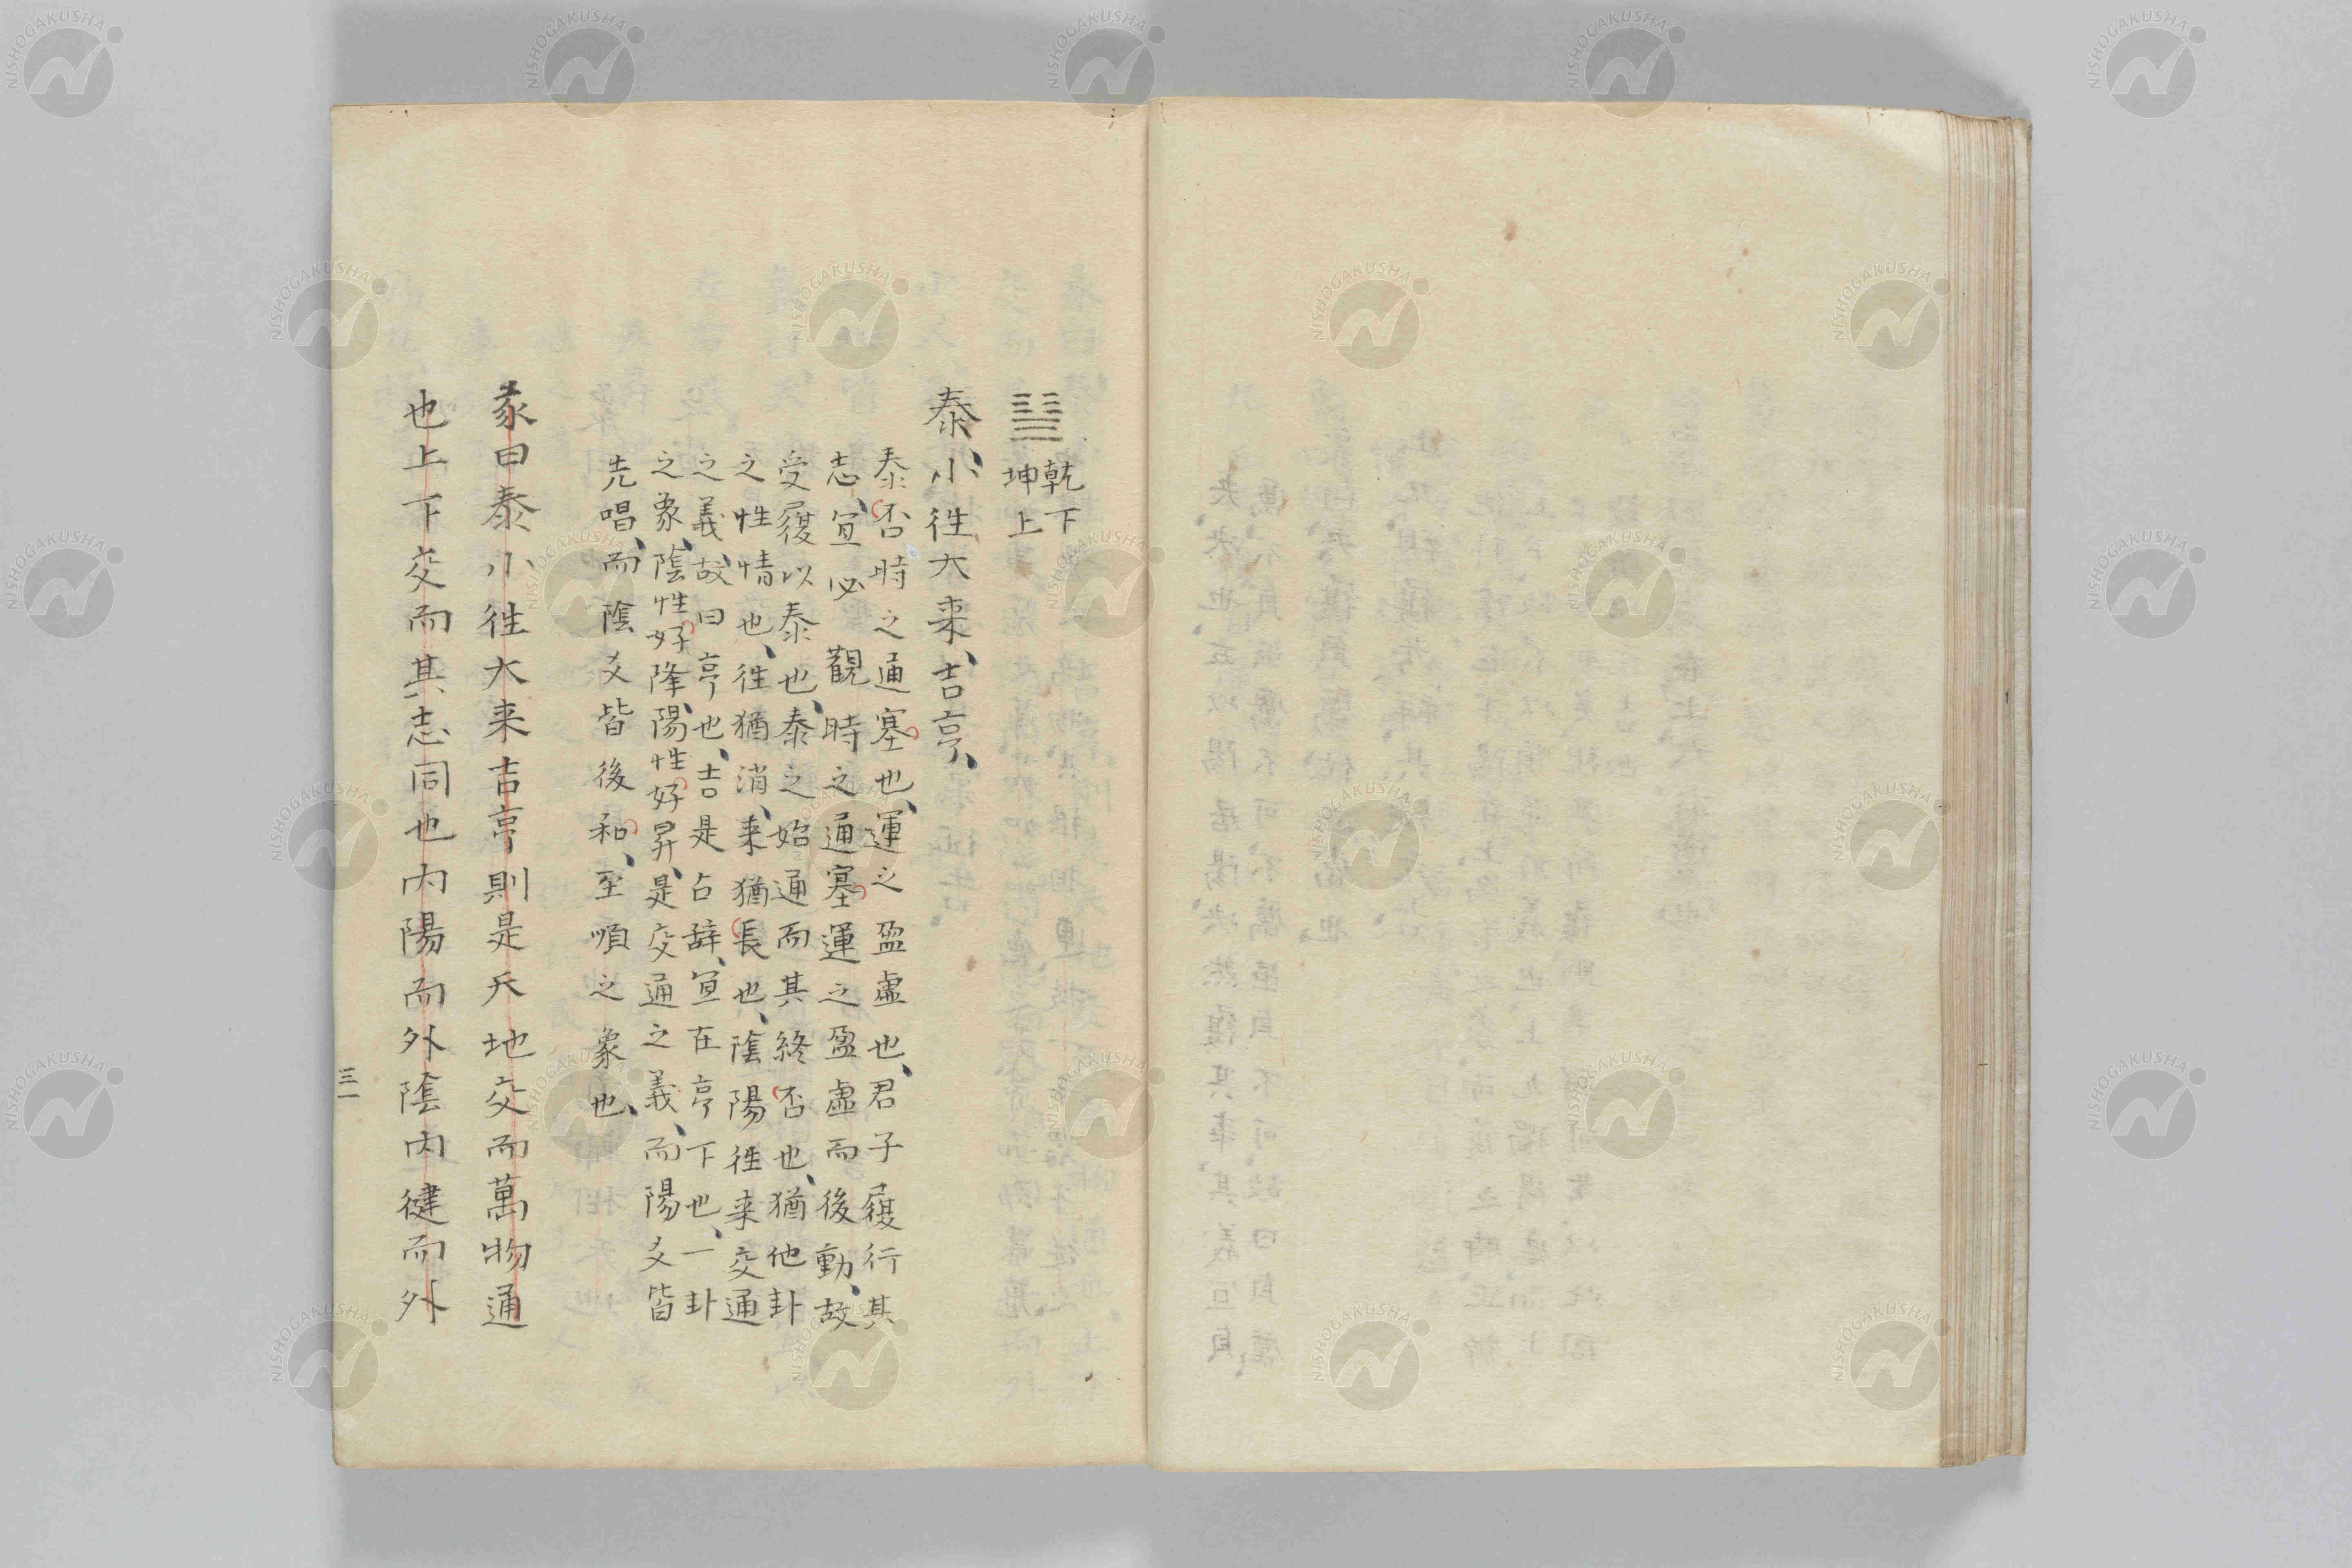 ䷊ 乾下
坤上
泰、小往大来、吉亨、
泰否時之通塞也、運之盈虚也、君子履行其
志、宜必觀時之通塞運之盈虚而後動、故
受履以泰也、泰之始通而其終否也、猶他卦
之性情也、往猶消、来猶長也、陰陽往来交通
之義、故曰亨也、吉是占辞、宜在亨下也、一卦
之象、陰性好降、陽性好昇、是交通之義、而陽爻皆
先唱、而陰爻皆後和、至順之象也、
彖曰泰小往大来吉亨則是天地交而萬物通
也上下交而其志同也内陽而外陰内健而外
三一
NISHOGAKUSHA